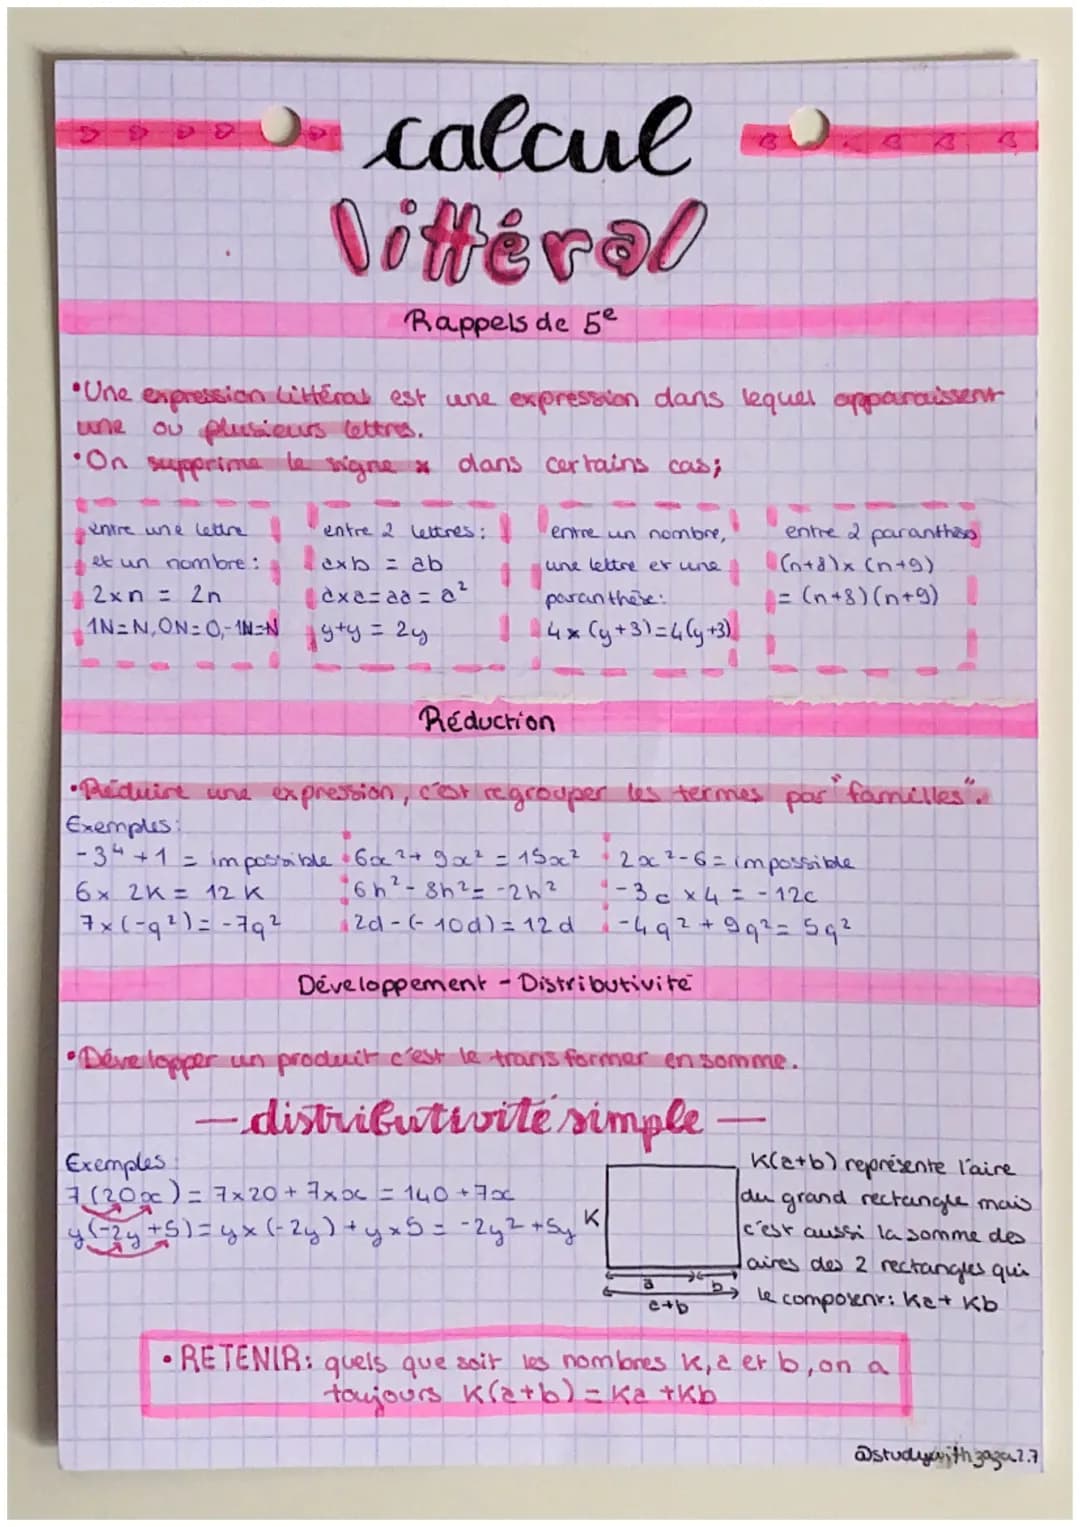 calcul
littéral
Rappels de 5e
•Une expression littéral est une expression dans lequel apparaissent
une ou plusieurs lettres.
•On supprime le signe x dans certains cas;
entre une lettre
et un nombre:
2xn = 2n
1N=N, 0N=0, -1N=N
entre 2 lettres:
axb = ab
axa=aa=a²
y+y = 2y
entre un nombre,
une lettre et une
paranthèse:
4x(y+3)=4(y+3)
entre 2 paranthèse
(n+8)x(n+9)
= (n+8)(n+9)
Réduction
•Réduire une expression, c'est regrouper les termes par "familles".
Exemples:
-3⁴+1 = impossible
6x 2K = 12 K
7x(-q²)= -7q²
6x²+ 9x² = 15x²
6h²- 8h²= -2h²
2d-(-10d)= 12d
2x²-6= impossible
-3c x4 = -12c
-4q²+9q²= 5q²
Développement - Distributivité
•Développer un produit c'est le transformer en somme.
— distributivité simple —
Exemples:
7(20x)= 7x20+7xx = 140 +7x
y(-2y+5)= yx(-2y)+yx5= -2y²+5y
K
a
b
a+b
K(a+b) représente l'aire
du grand rectangle mais
c'est aussi la somme des
aires des 2 rectangles qui
le composent: Ka+ Kb
•RETENIR: quels que soit les nombres K,a et b, on a
toujours K(a+b)= Ka +Kb
@studywithzaza2.7